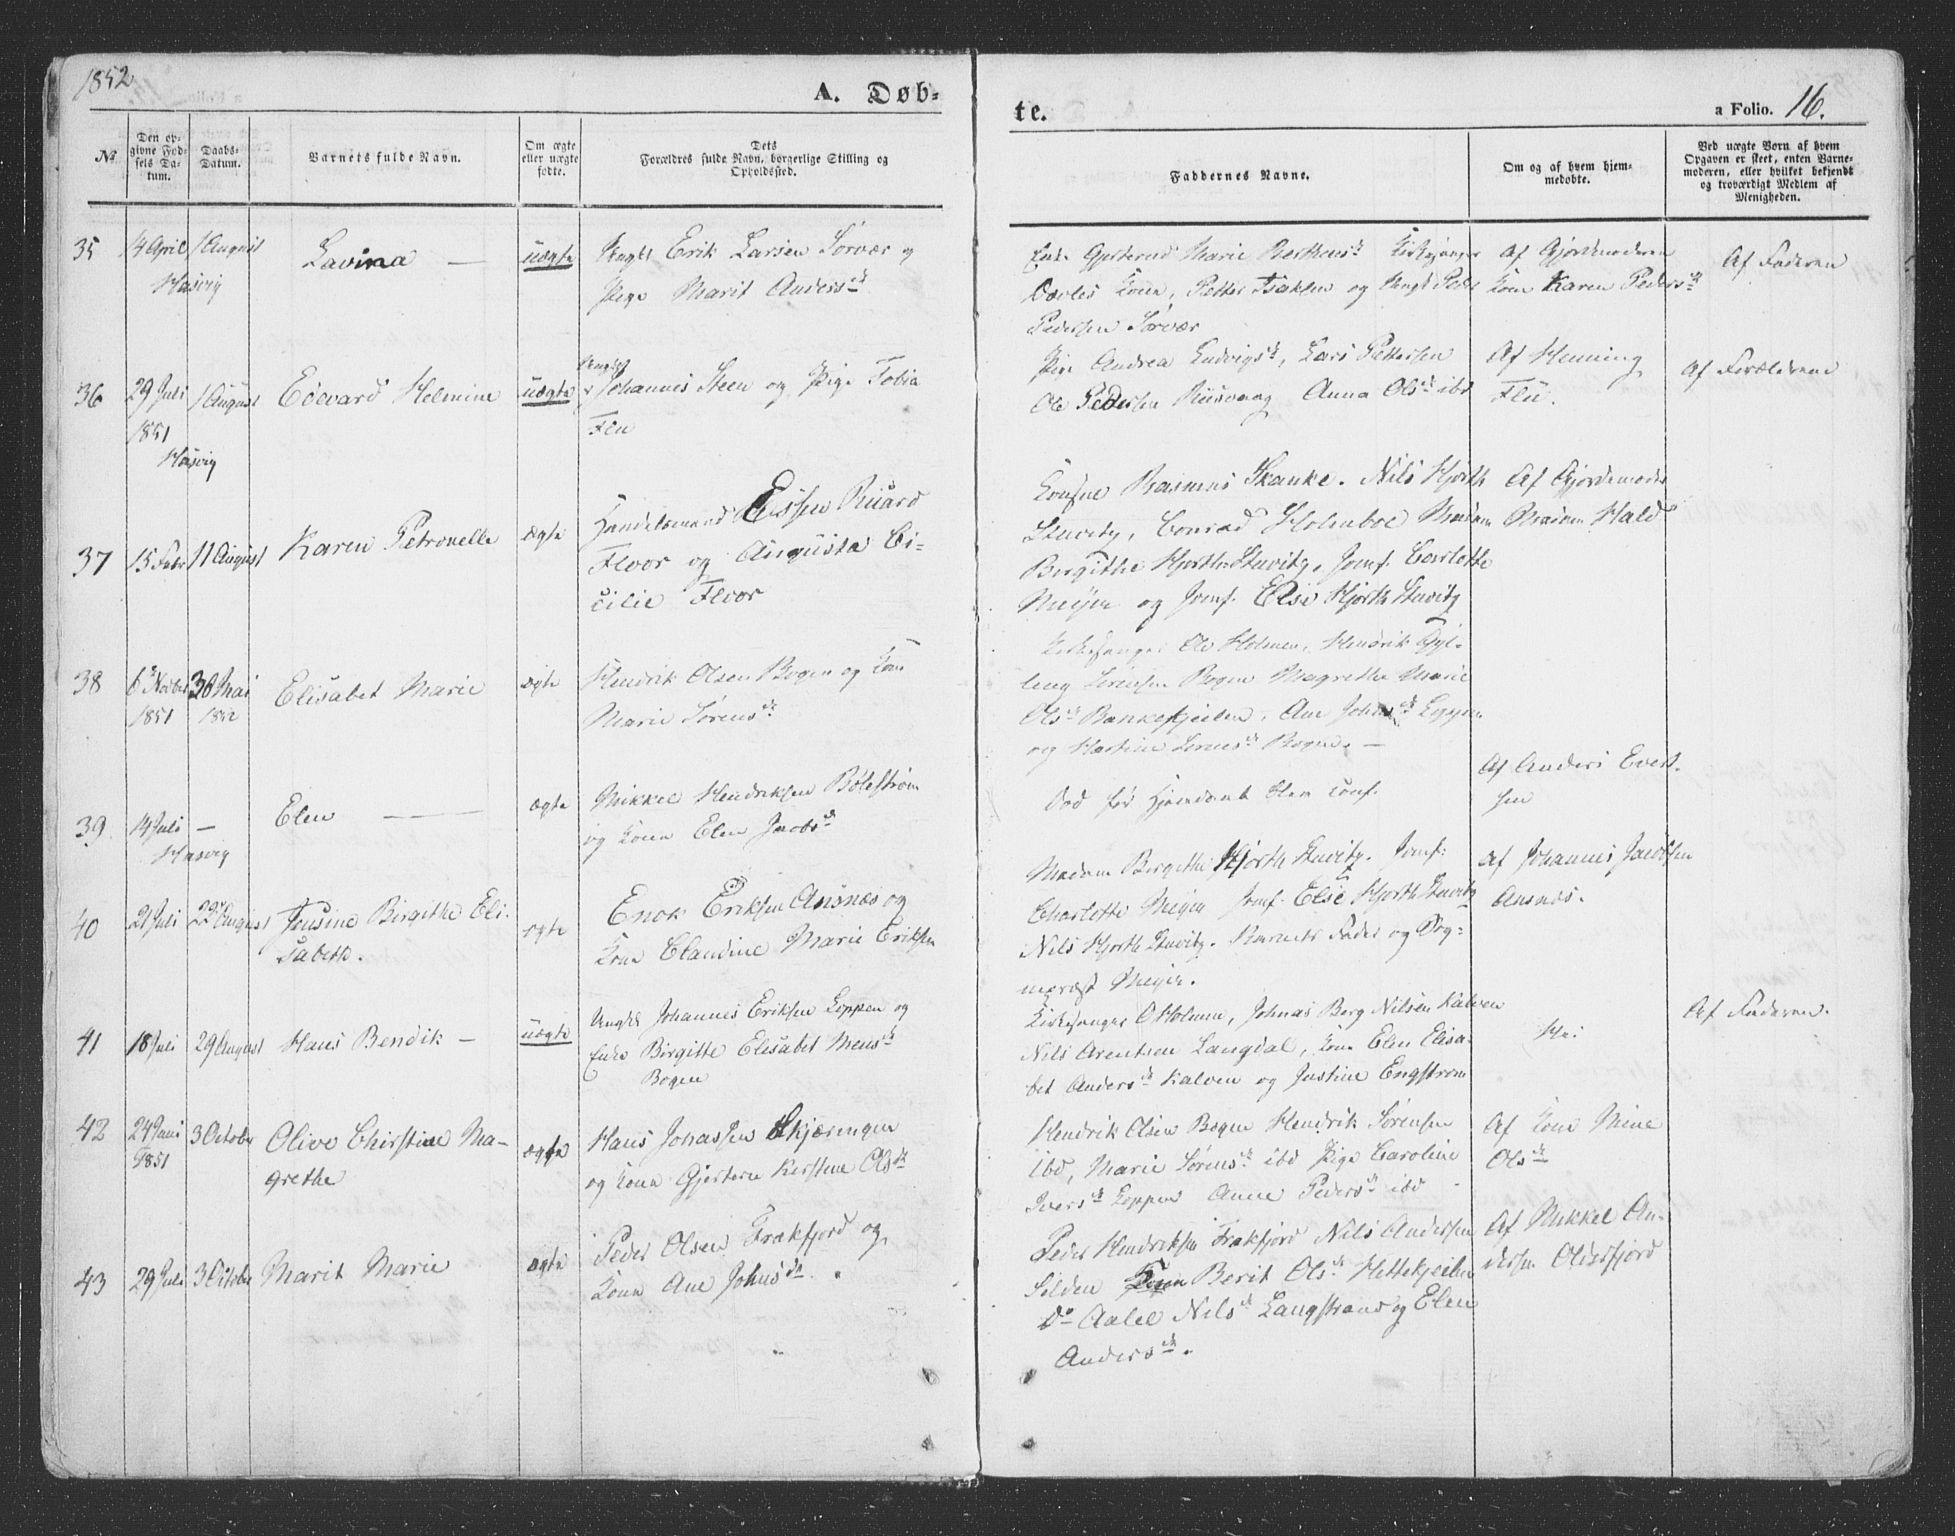 1852
A. Døb-
te.
a Folio. 16.
No
Den op-
givne Fød-
sels Da-
tum.
Daabs-
Datum.
Barnets fulde Navn.
Om ægte
eller uægte
fødte.
Dets
Forældres fulde Navn, borgerlige Stilling og
Opholdssted.
Faddernes Navne.
Om og af hvem hjem-
medøbte.
Ved uægte Børn af hvem
Opgaven er skeet, enten Barne-
moderen, eller hvilket bekjendt
og troværdigt Medlem af
Menigheden.
35 14 April 1 August Lavina — uægte Ungk. Erik Larsen Sørvær og
Hasvig
Pige Marit Andersdt
Enke Gjertrud Marie Kirkesanger
Kone, Petter Isaksen og Ungk Peder
Pedersen Sørvær
Af Gjordemoderen
Kone Karen Pedersdt
Af Faderen
36 29 Juli 1 August Edevard Helmine uægte
1851
Hasvig
Ungk
Johannes Steen og Pige Tobia
Flu
Pige Andrea Ludvigsdt, Lars Pettersen
Ole Pedersen Anna Olsdt ibd
Af Henning
Flu.
Af Forældrene
37 15 Febr 11 August Karen Petronelle ægte
Handelsmand Eissen Ruard
Floor og Augusta Ci-
cilie Floor
Rasmus Skanke. Nils Hjorth
Stuvitz, Conrad Holmboe Madam
Birgithe Hjorth Stuvitz, Jomf. Carlotte
Meyer og Jomf. Else Hjorth Stuvitz
Af Gjordemoder
Madam Hald
38 6te Novbr 30 Mai Elisabet Marie ægte
1851 1852
Hendrik Olsen Bogen og Kone
Marie Sørensdt
Kirkesanger Ole Holmen, Hendrik Gyl-
leng Sørensen Bogen Magrethe Marie
Olsdt Bankekjeilen, Ane Johnsdt Loppen
og Martine Sørensdt Bogen. —
39 14 Juli — Elen — ægte
Hasvig
Mikkel Hendriksen Bølestrøm
og Kone Elen Jacobsdt
Død før Hjemdaab blev conf.
Af Anders Evert-
sen
40 21 Juli 22 August Jensine Birgithe Eli-
sabeth.
ægte
Enok Eriksen Ansnæs og
Kone Claudine Marie Eriksen
Madam Birgithe Hjorth Stuvitz. Jomf:
Charlotte Meyer Jomf. Else Hjorth Stuvitz
Nils Hjorth Stuvitz. Barnets Fader og Sog-
nepræst Meyer.
Af Johannes Jacobsen
Ansnæs.
41 18 Juli 29 August Hans Bendik — uægte
Ungk. Johannes Eriksen Loppen og
Enke Birgitte Elisabet Mensdt
Bogen
Kirkesanger O Holmen, Johnas Berg Nilsen Kalven
Nils Arentsen Langdal, Kone Elen Elisa-
bet Andersdt Kalven og Justine Engstrøm
Af Faderen.
42 24 Juni 3 October Olive Christine Ma-
1851
grethe
ægte
Hans Johassen Skjæringen
og Kone Gjertine Kirstine Olsdt
Hendrik Olsen Bogen Hendrik Sørensen
ibd, Marie Sørensdt ibd Pige Caroline
Iversdt Loppen Anne Pedersdt ibd
Af Kone Mine
Olsdt
43 29 Juli 3 October Marit Marie ægte
Peder Olsen Frakfjord og
Kone Ane Johnsdt.
Peder Hendriksen Frakfjord Nils Andersen
Silden Berit Olsdt Hettekjeilen
Do Aalet Nilsdt Langstrand og Elen
Andersdt.
Af Mikkel An-
dersen Oldersfjord